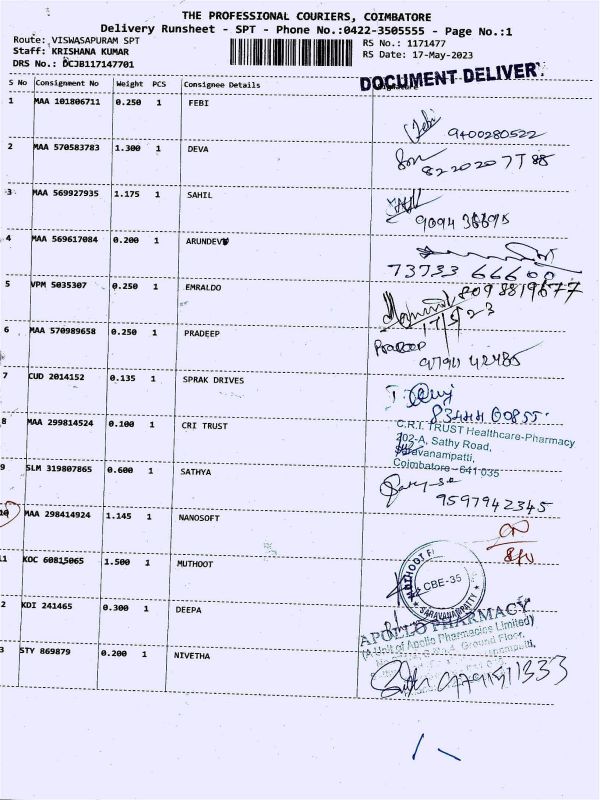 THE PROFESSIONAL COURIERS, COIMBATORE
Delivery Runsheet - SPT - Phone No.:0422-3505555 - Page No.:1
Route: VISWASAPURAM SPT
Staff: KRISHANA KUMAR
DRS No.: DCJB117147701
RS No.: 1171477
RS Date: 17-May-2023
DOCUMENT DELIVERY
S No Consignment No Weight PCS Consignee Details Signature
1 MAA 101806711 0.250 1 FEBI
Febi 9400280522
2 MAA 570583783 1.300 1 DEVA
3 MAA 569927935 1.175 1 SAHIL
4 MAA 569617084 0.200 1 ARUNDEV
73733 66600
5 VPM 5035307 0.250 1 EMRALDO
8098819677
17/5/23
6 MAA 570989658 0.250 1 PRADEEP
Pradeep
97911 42485
7 CUD 2014152 0.135 1 SPRAK DRIVES
83444 00855
8 MAA 299814524 0.100 1 CRI TRUST
C.R.I. TRUST Healthcare-Pharmacy
202-A, Sathy Road,
Saravanampatti,
Coimbatore - 641 035
9 SLM 319807865 0.600 1 SATHYA
9597942345
10 MAA 298414924 1.145 1 NANOSOFT
11 KOC 60815065 1.500 1 MUTHOOT
MUTHOOT FI
CBE-35
SARAVANAMPATTY
2 KDI 241465 0.300 1 DEEPA
APOLLO PHARMACY
(A Unit of Apollo Pharmacies Limited)
Ground Floor,
3 STY 869879 0.200 1 NIVETHA